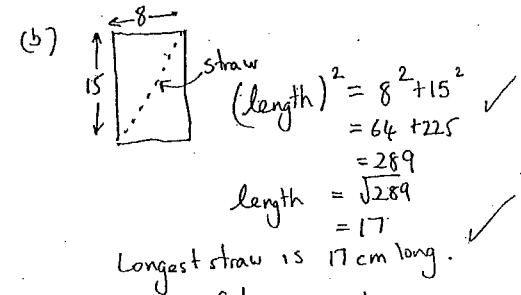 (b)
8
15
straw
(length)² = 8² + 15²
= 64 + 225
= 289
length = √289
= 17
Longest straw is 17 cm long.